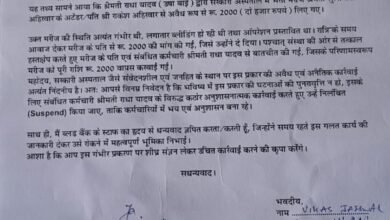 यह तथ्य सामने आया कि श्रीमती राधा यादव ( उषा बाई ) द्वारा सरकारी अस्पताल में
अहिरवार के अटेंडर/ पति श्री राकेश अहिरवार से अवैध रूप से रू. 2000 ( दो हजार रूपये ) लिए गए।
उक्त मरीज की स्थिति अत्यंत गंभीर थी, लगातार ब्लीडिंग हो रही थी तथा ऑपरेशन प्रस्तावित था। रात्रि के समय
आवाज देकर मरीज के पति से रू. 2000 की मांग की गई, जिसे उन्होंने दे दिया। पश्चात् संस्था की ओर से तत्काल
हस्तक्षेप करते हुए मरीज के पति एवं संबंधित कर्मचारी श्रीमती राधा यादव से बातचीत की गई, जिसके परिणामस्वरूप
मरीज को पूरी राशि रू. 2000 वापस करवाई गई।
महोदय, सरकारी अस्पताल जैसे संवेदनशील एवं जनहित के स्थान पर इस प्रकार की अवैध एवं अनैतिक कार्रवाई
अत्यंत निंदनीय है। अतः आपसे विनम्र निवेदन है कि भविष्य में इस प्रकार की घटनाओं की पुनरावृत्ति न हो, इसके
लिए संबंधित कर्मचारी श्रीमती राधा यादव के विरुद्ध कठोर अनुशासनात्मक कार्रवाई करते हुए उन्हें निलंबित
(Suspend) किया जाए, ताकि कर्मचारियों में भय एवं अनुशासन बना रहे।
साथ ही, मैं ब्लड बैंक के स्टाफ का हृदय से धन्यवाद ज्ञापित करता/करती हूँ, जिन्होंने समय रहते इस गलत कार्य की
जानकारी देकर उसे रोकने में महत्वपूर्ण भूमिका निभाई।
आशा है कि आप इस गंभीर प्रकरण पर शीघ्र संज्ञान लेकर उचित कार्रवाई करने की कृपा करेंगे।
सधन्यवाद।
भवदीय,
VIKAS